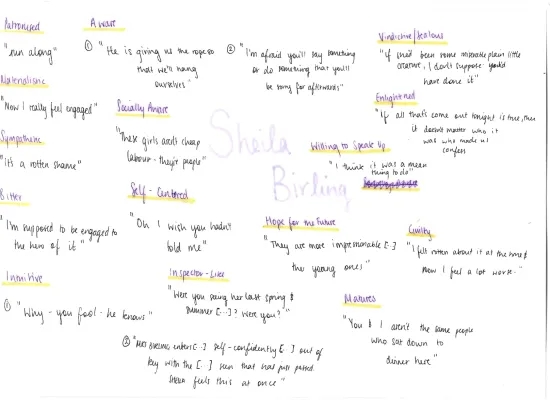 Patronised
"run along"
Materialistic
"Now I really feel engaged"
Sympathetic
"It's a rotten shame"
Bitter
"I'm supposed to be engaged to
the hero of it"
Intuitive
① "Why - you fool - he knows"
Aware
① "He is giving us the rope so
that we'll hang
ourselves"
② "I'm afraid you'll say something
or do something that you'll
be sorry for afterwards"
Socially Aware
"These girls aren't cheap
labour - they're people"
Self - Centred
"Oh I wish you hadn't
told me"
Inspector - Like
"Were you seeing her last spring &
summer [...]? Were you?"
② "MRS BIRLING enters [...] self-confidently [...] out of
key with the [...] scene that has just passed
SHEILA feels this at once"
Sheila
Birling
Vindictive/Jealous
"if she'd been some miserable plain little
creature, I don't suppose I'd
have done it"
Enlightened
"If all that's come out tonight is true, then
it doesn't matter who it
was who made us
confess
Willing to Speak Up
"I think it was a mean
thing to do"
Hope for the Future
"They are more impressionable [...]
the young ones"
Guilty
"I felt rotten about it at the time &
now I feel a lot worse."
Matures
"You & I aren't the same people
who sat down to
dinner here"